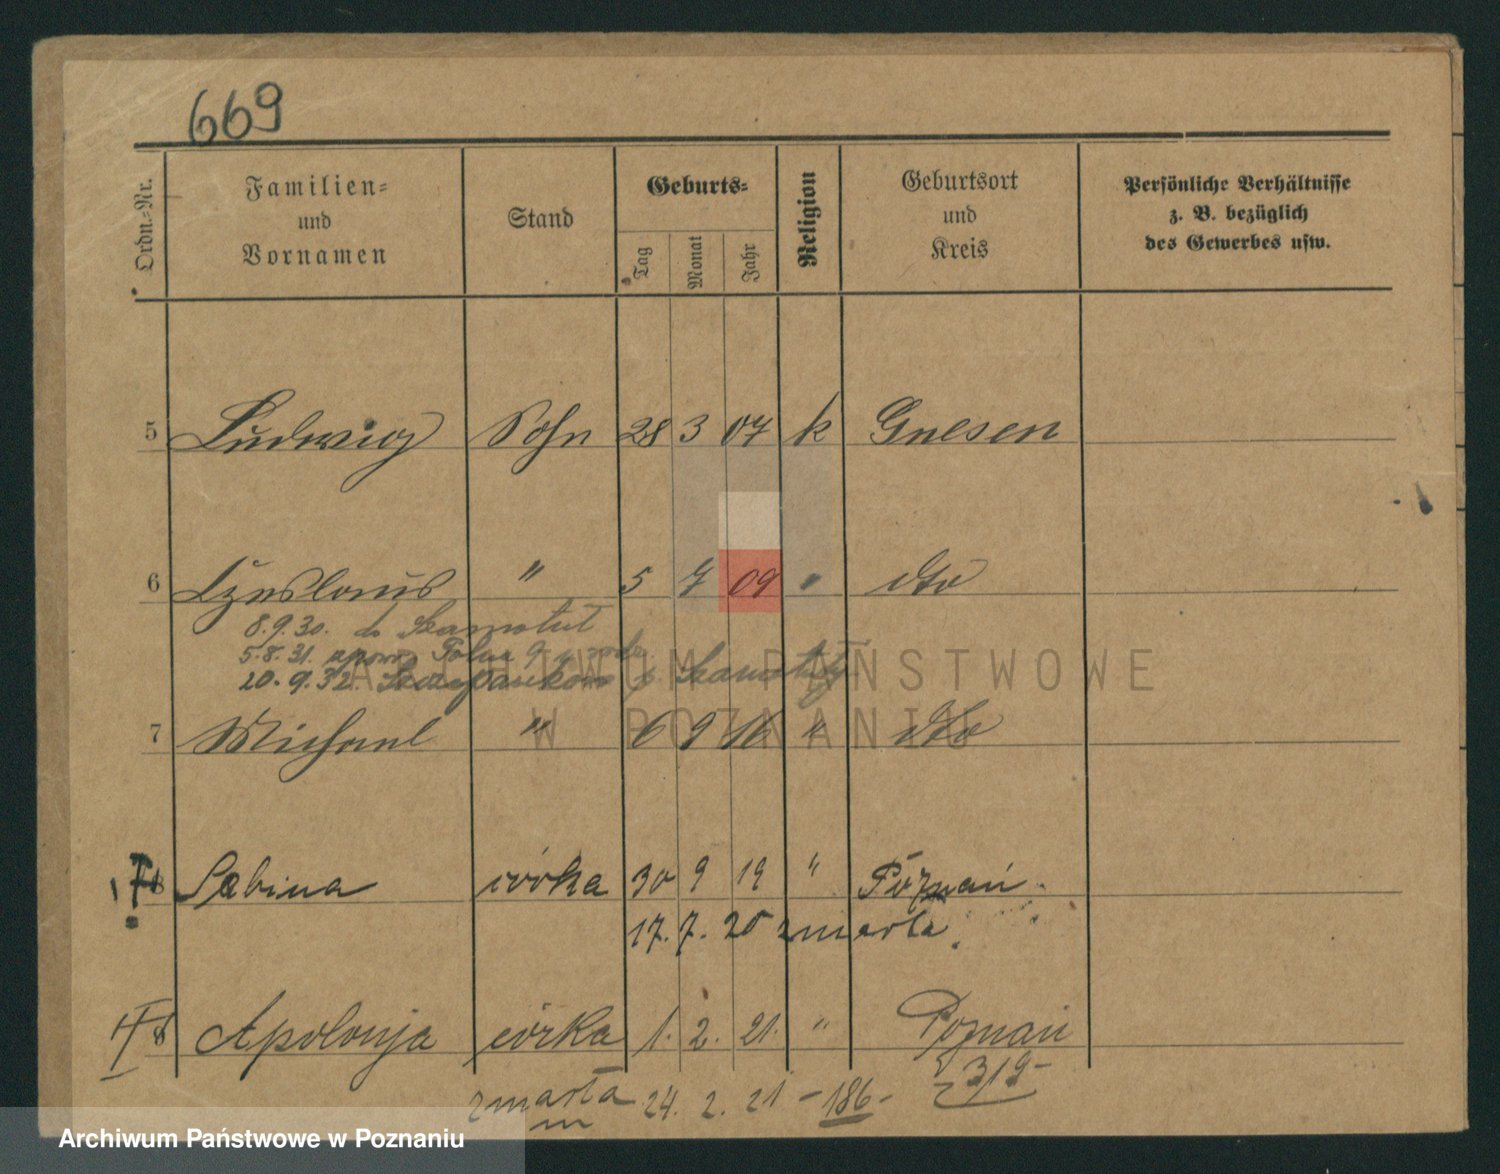 669
Ordn.-Nr.
Familien-
und
Vornamen
Stand
Geburts-
Tag
Monat
Jahr
Religion
Geburtsort
und
Kreis
Persönliche Verhältnisse
z. B. bezüglich
des Gewerbes usw.
5 Ludwig Sohn 28 3 07 k Gnesen
6 Czeslaus " 5 7 09 " dto
8.9.30. do Szamotuł
5.8.31.
20.9.32. Szamotuły
ARCHIWUM PAŃSTWOWE
W POZNANIU
7 Michael " 6 9 16 " dto
8 Sabina córka 30 9 19 " Poznań
17. 7. 20 zmarła.
8 Apolonja córka 1. 2. 21. " Poznań
319-
zmarła 24. 2. 21 - 186 -
Archiwum Państwowe w Poznaniu